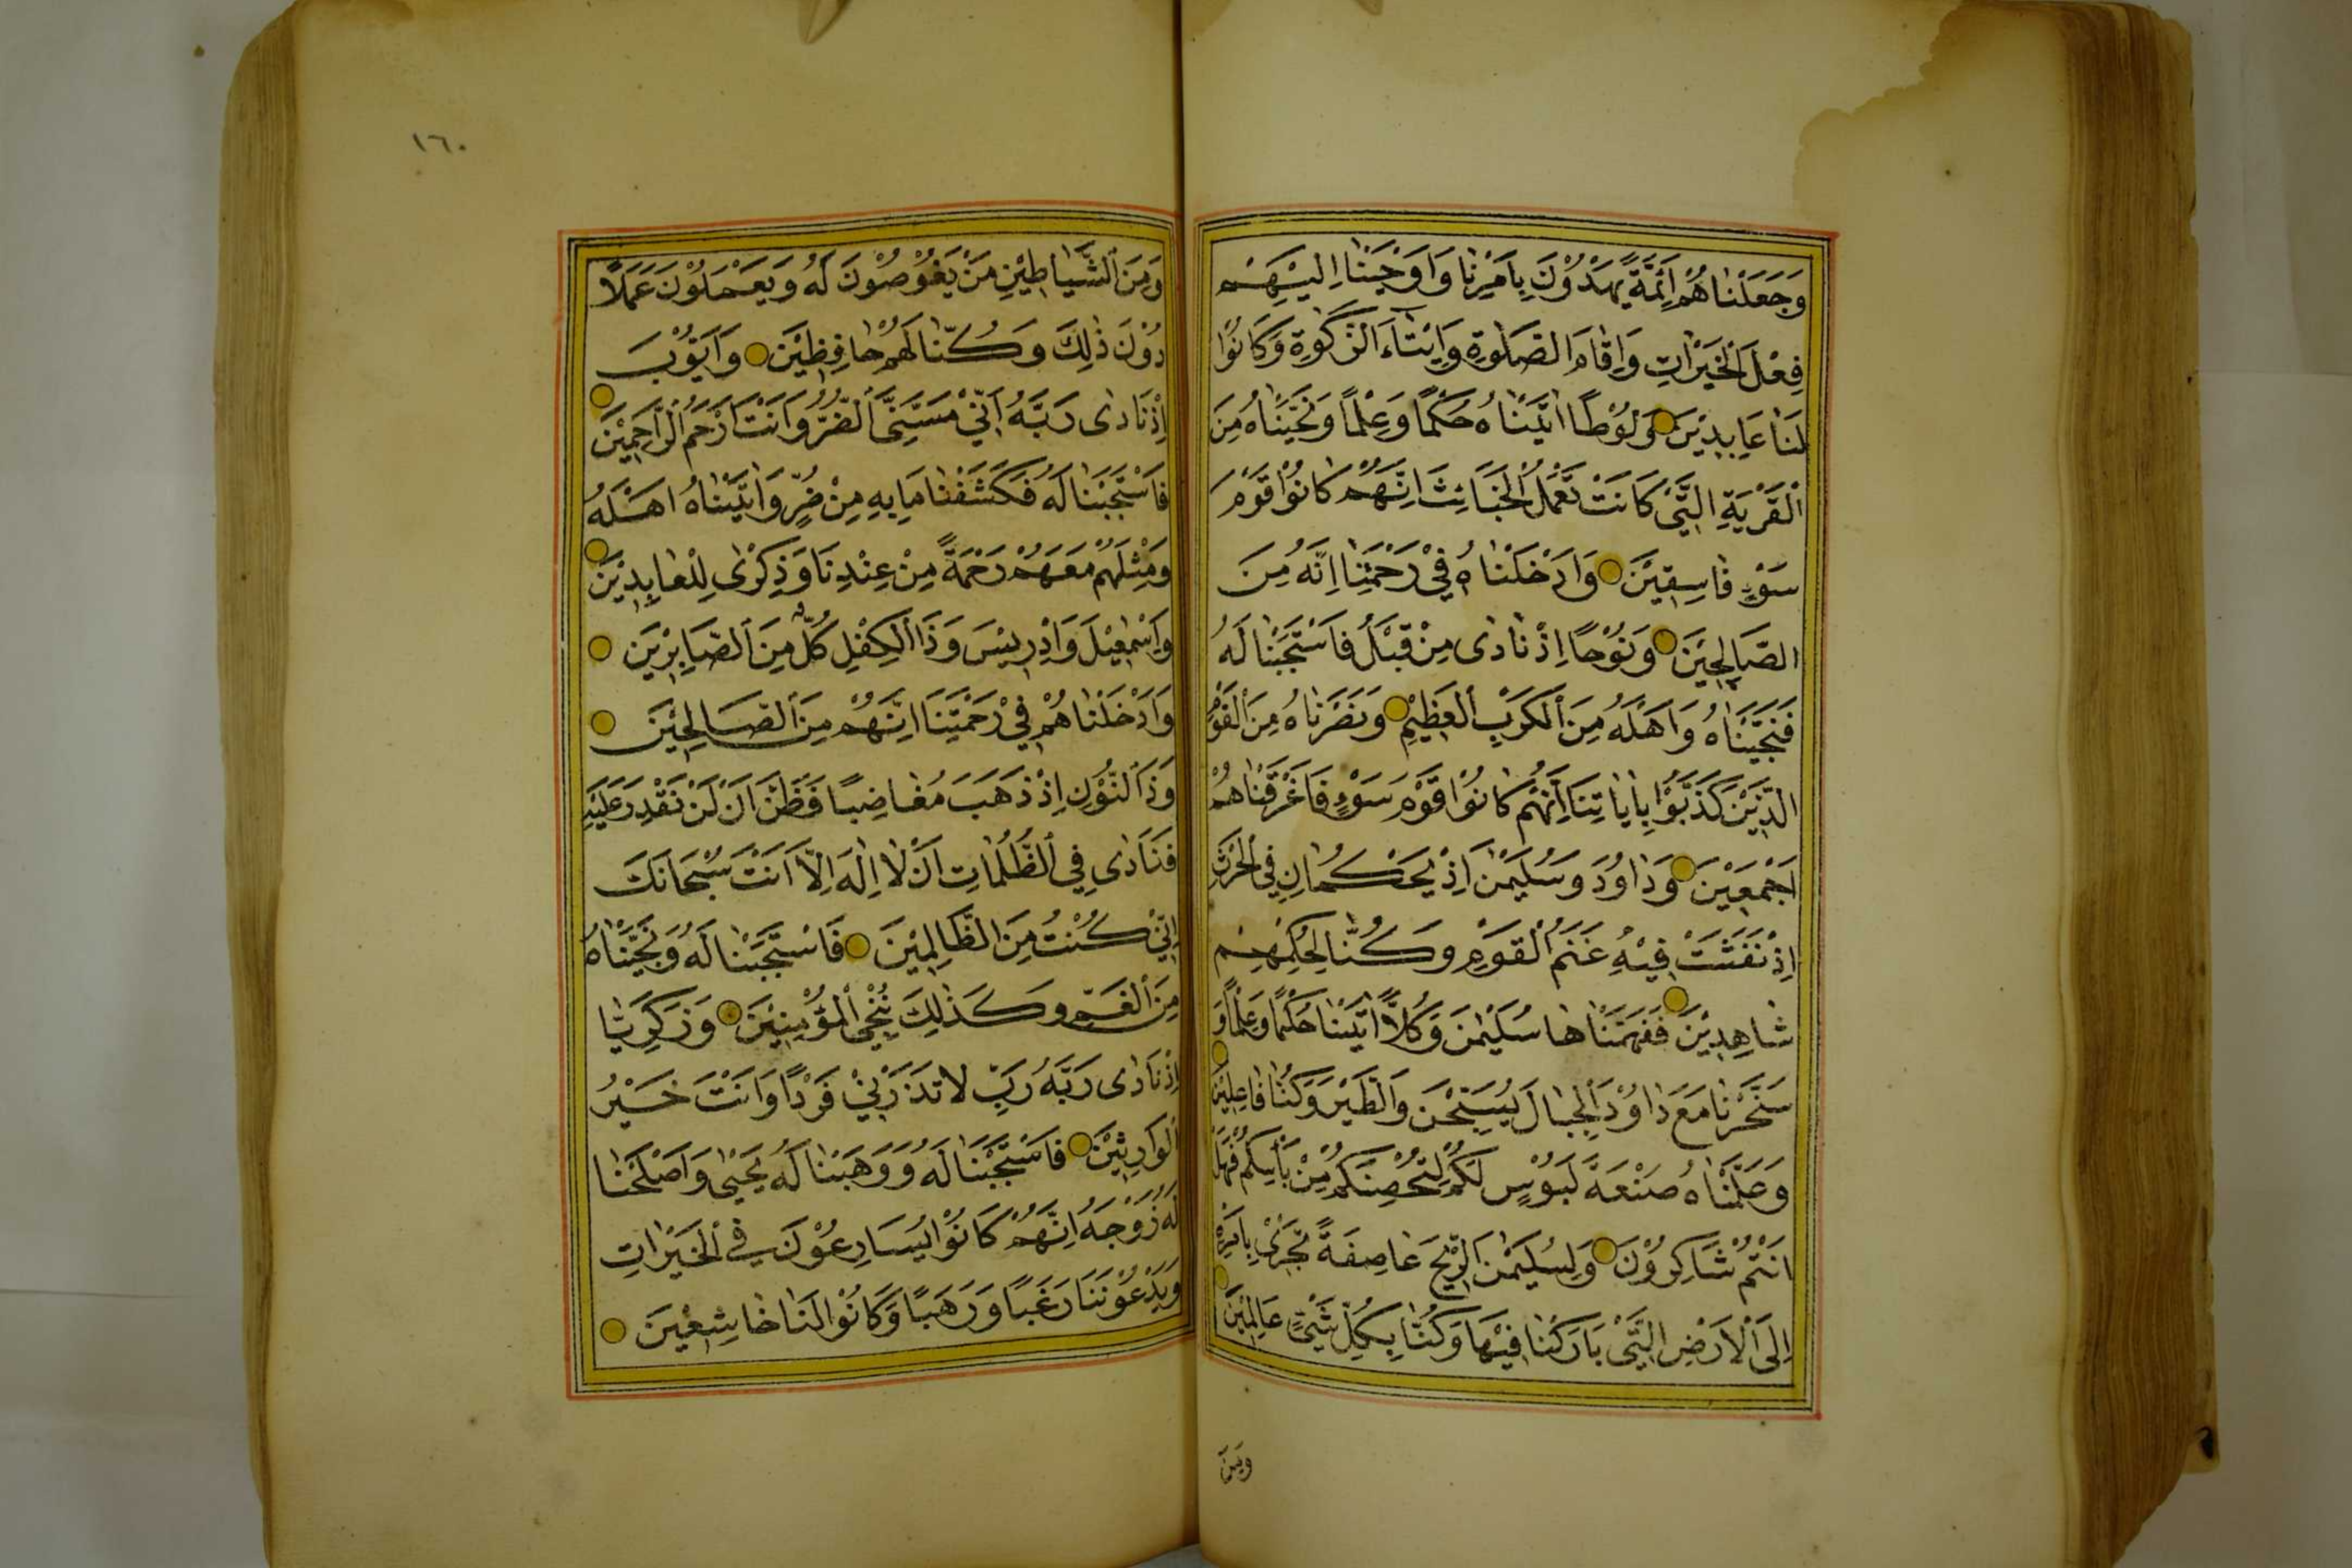 وَجَعَلْنَاهُمْ اَئِمَّةً يَهْدُوْنَ بِاَمْرِنَا وَاَوْحَيْنَا اِلَيْهِمْ
فِعْلَ الْخَيْرَاتِ وَاِقَامَ الصَّلٰوةِ وَاِيْتَاءَ الزَّكٰوةِ وَكَانُوْا
لَنَا عَابِدِيْنَ وَلُوْطًا اٰتَيْنَاهُ حُكْمًا وَعِلْمًا وَنَجَّيْنَاهُ مِنَ
الْقَرْيَةِ الَّتِيْ كَانَتْ تَعْمَلُ الْخَبَائِثَ اِنَّهُمْ كَانُوْا قَوْمَ
سَوْءٍ فَاسِقِيْنَ وَاَدْخَلْنَاهُ فِيْ رَحْمَتِنَا اِنَّهُ مِنَ
الصَّالِحِيْنَ وَنُوْحًا اِذْ نَادٰى مِنْ قَبْلُ فَاسْتَجَبْنَا لَهُ
فَنَجَّيْنَاهُ وَاَهْلَهُ مِنَ الْكَرْبِ الْعَظِيْمِ وَنَصَرْنَاهُ مِنَ الْقَوْمِ
الَّذِيْنَ كَذَّبُوْا بِاٰيَاتِنَا اِنَّهُمْ كَانُوْا قَوْمَ سَوْءٍ فَاَغْرَقْنَاهُمْ
اَجْمَعِيْنَ وَدَاوُدَ وَسُلَيْمٰنَ اِذْ يَحْكُمَانِ فِي الْحَرْثِ
اِذْ نَفَشَتْ فِيْهِ غَنَمُ الْقَوْمِ وَكُنَّا لِحُكْمِهِمْ
شَاهِدِيْنَ فَفَهَّمْنَاهَا سُلَيْمٰنَ وَكُلًّا اٰتَيْنَا حُكْمًا وَعِلْمًا وَ
سَخَّرْنَا مَعَ دَاوُدَ الْجِبَالَ يُسَبِّحْنَ وَالطَّيْرَ وَكُنَّا فَاعِلِيْنَ
وَعَلَّمْنَاهُ صَنْعَةَ لَبُوْسٍ لَكُمْ لِتُحْصِنَكُمْ مِنْ بَأْسِكُمْ فَهَلْ
اَنْتُمْ شَاكِرُوْنَ وَلِسُلَيْمٰنَ الرِّيْحَ عَاصِفَةً تَجْرِيْ بِاَمْرِهِ
اِلَى الْاَرْضِ الَّتِيْ بَارَكْنَا فِيْهَا وَكُنَّا بِكُلِّ شَيْءٍ عَالِمِيْنَ
وَمِنَ
١٦٠
وَمِنَ الشَّيَاطِيْنِ مَنْ يَغُوْصُوْنَ لَهُ وَيَعْمَلُوْنَ عَمَلًا
دُوْنَ ذٰلِكَ وَكُنَّا لَهُمْ حَافِظِيْنَ وَاَيُّوْبَ
اِذْ نَادٰى رَبَّهُ اَنِّيْ مَسَّنِيَ الضُّرُّ وَاَنْتَ اَرْحَمُ الرَّاحِمِيْنَ
فَاسْتَجَبْنَا لَهُ فَكَشَفْنَا مَا بِهِ مِنْ ضُرٍّ وَاٰتَيْنَاهُ اَهْلَهُ
وَمِثْلَهُمْ مَعَهُمْ رَحْمَةً مِنْ عِنْدِنَا وَذِكْرٰى لِلْعَابِدِيْنَ
وَاِسْمٰعِيْلَ وَاِدْرِيْسَ وَذَا الْكِفْلِ كُلٌّ مِنَ الصَّابِرِيْنَ
وَاَدْخَلْنَاهُمْ فِيْ رَحْمَتِنَا اِنَّهُمْ مِنَ الصَّالِحِيْنَ
وَذَا النُّوْنِ اِذْ ذَهَبَ مُغَاضِبًا فَظَنَّ اَنْ لَنْ نَقْدِرَ عَلَيْهِ
فَنَادٰى فِي الظُّلُمَاتِ اَنْ لَا اِلٰهَ اِلَّا اَنْتَ سُبْحَانَكَ
اِنِّيْ كُنْتُ مِنَ الظَّالِمِيْنَ فَاسْتَجَبْنَا لَهُ وَنَجَّيْنَاهُ
مِنَ الْغَمِّ وَكَذٰلِكَ نُنْجِي الْمُؤْمِنِيْنَ وَزَكَرِيَّا
اِذْ نَادٰى رَبَّهُ رَبِّ لَا تَذَرْنِيْ فَرْدًا وَاَنْتَ خَيْرُ
الْوَارِثِيْنَ فَاسْتَجَبْنَا لَهُ وَوَهَبْنَا لَهُ يَحْيٰى وَاَصْلَحْنَا
لَهُ زَوْجَهُ اِنَّهُمْ كَانُوْا يُسَارِعُوْنَ فِي الْخَيْرَاتِ
وَيَدْعُوْنَنَا رَغَبًا وَرَهَبًا وَكَانُوْا لَنَا خَاشِعِيْنَ